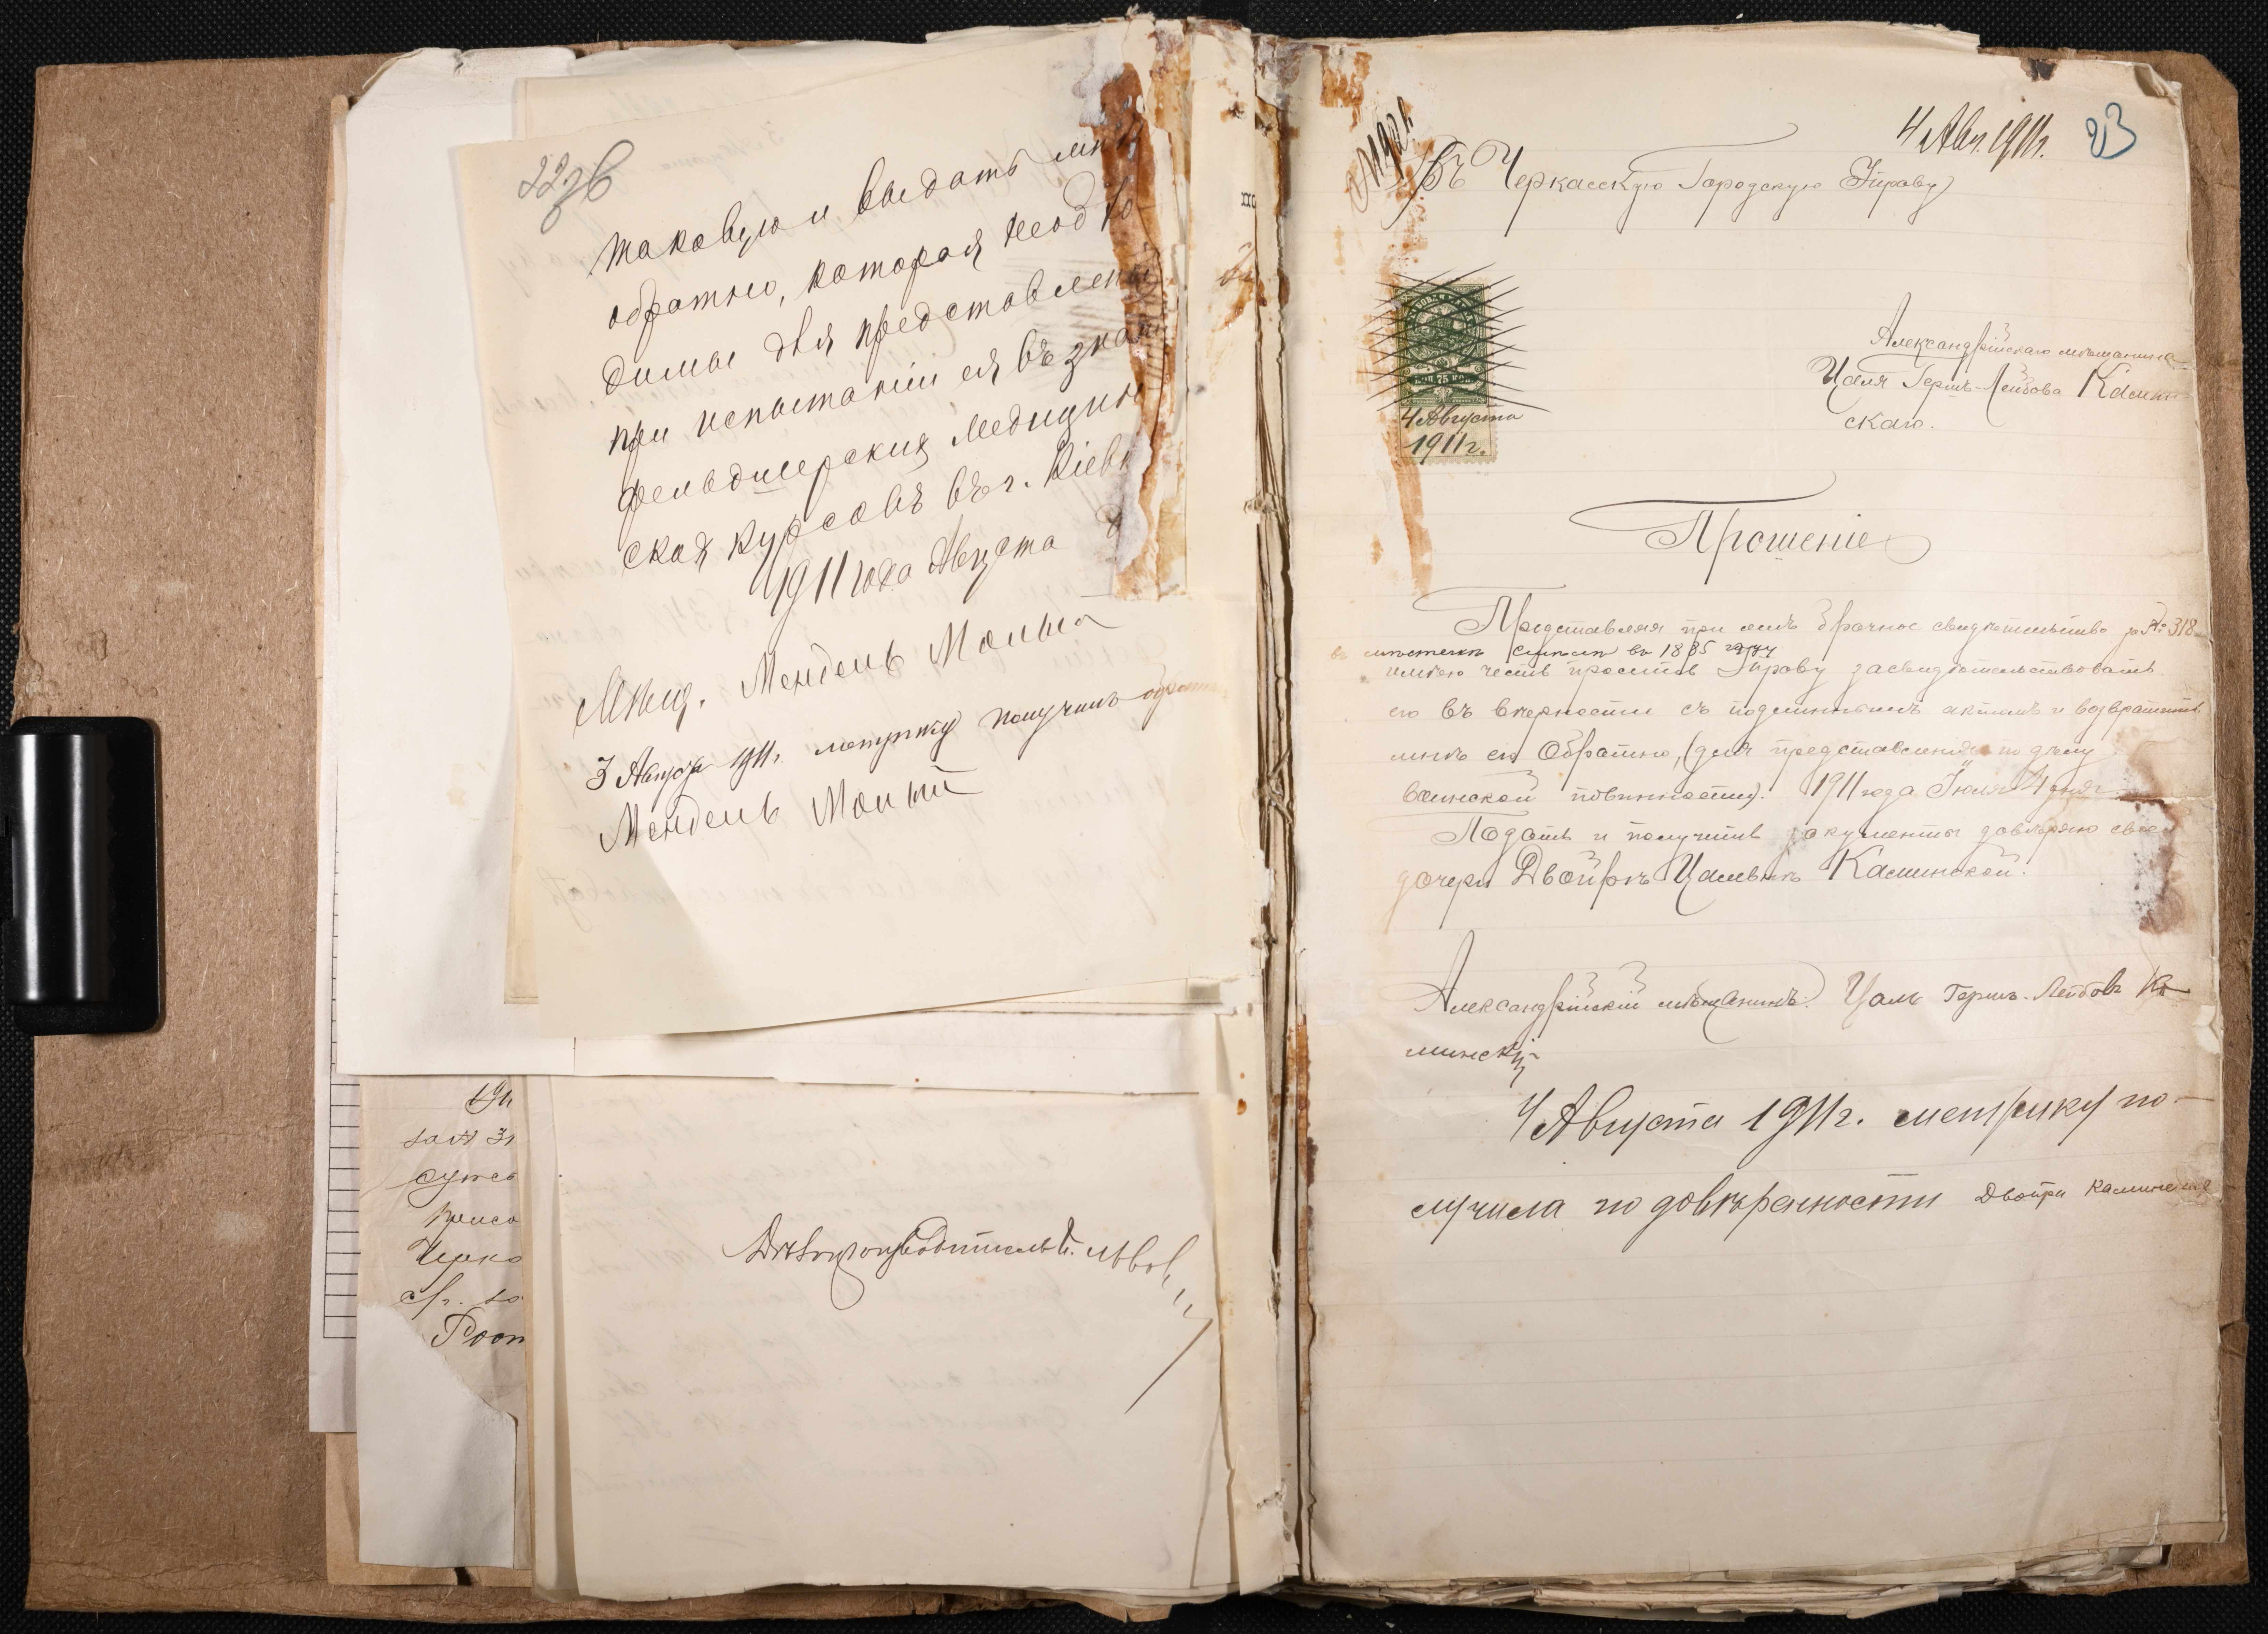 22 об
таковую и выдать мнѣ
обратно, которая необхо
димы для представлены
при испытаніи ея въ знан
фельдшерских медицин
ская курсовъ въ г. Кіевѣ
1911 года Августа
Мѣщ. Мендель Малый
3 Августа 1911 г. метрику получилъ обратно
Мендель Малый
Дѣлопроизводитель
сужо
Черка
4 Авг. 1911 г. 23
Въ Черкасскую Городскую Управу
75 КОП.
4 Августа
1911 г.
Александрійскаго мѣщанина
Цаля Гершъ-Лейбова Камин
скаго.
Прошеніе
Представляя при семъ брачное свидѣтельство за № 318
въ мѣстечкѣ въ 1885 году
имѣю честь просить Управу засвидѣтельствовать
его въ вѣрности съ подлиннымъ актомъ и возвратить
мнѣ его обратно, (для представленія по дѣлу
воинской повинности). 1911 года Іюля 4 дня.
Подать и получить документы довѣряю свое
дочери Двойрѣ Цалевнѣ Каминской.
Александрійскій мѣщанинъ Цаль Гершъ-Лейбовъ Ка
минскій
4 Августа 1911 г. метрику по-
лучила по довѣренности Двойра Каминская